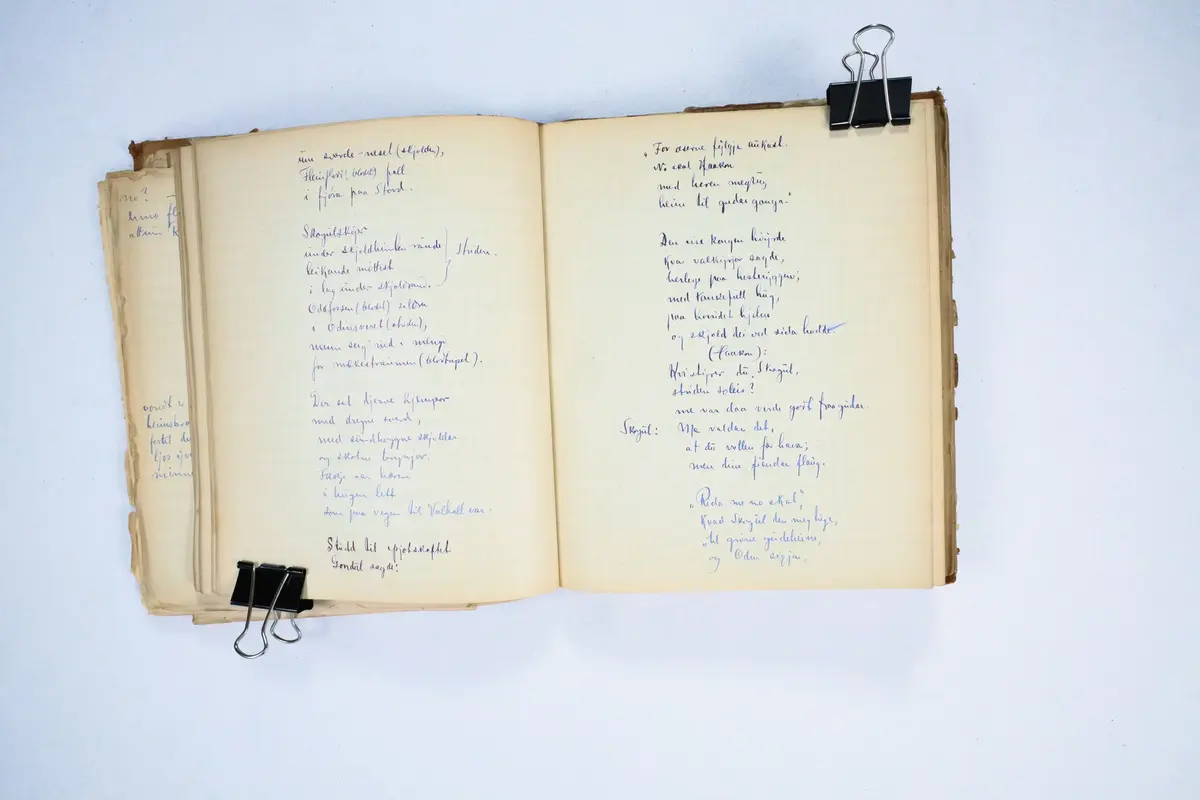 no?
um sverde-neset (skjolden),
Fleinflovi (blodet) fall
i fjöra paa Stord.
Skogulskyer
under skjoldhimlen raude
leikande möttest
i lag under skjoldrand.
striden.
Oddforsen (blodet)
i Odinsveret (striden),
mann seig ned i mengi
for mækestraumen (blodtapet).
Der sat djerve kjempor
med dregne sverd,
med sundhoggne skjoldar
og skotne brynjor.
var heren
i hugen lett
som paa vegen til Valhall var.
Studd til spjotskaftet
Gondul sagde:
"For æserne fylgje aukast.
No skal Haakon
med heren megtug
heim til gudar ganga."
Den vise kongen höyrde
kva valkyrjor sagde,
herlege paa hesteryggen;
med tankefull hug,
paa hovudet hjelm
og skjold dei ved sida hadde
(Haakon):
Kvi styrer du, Skogul,
striden soleis?
me var daa verde godt fraa gudar.
Skogul: Me valdar det,
at du vollen fær hava;
men dine fiendar flaug.
"Rida me no skal",
kvad Skogul den megtige,
"til gröne gudeheim,
og Odin segja,